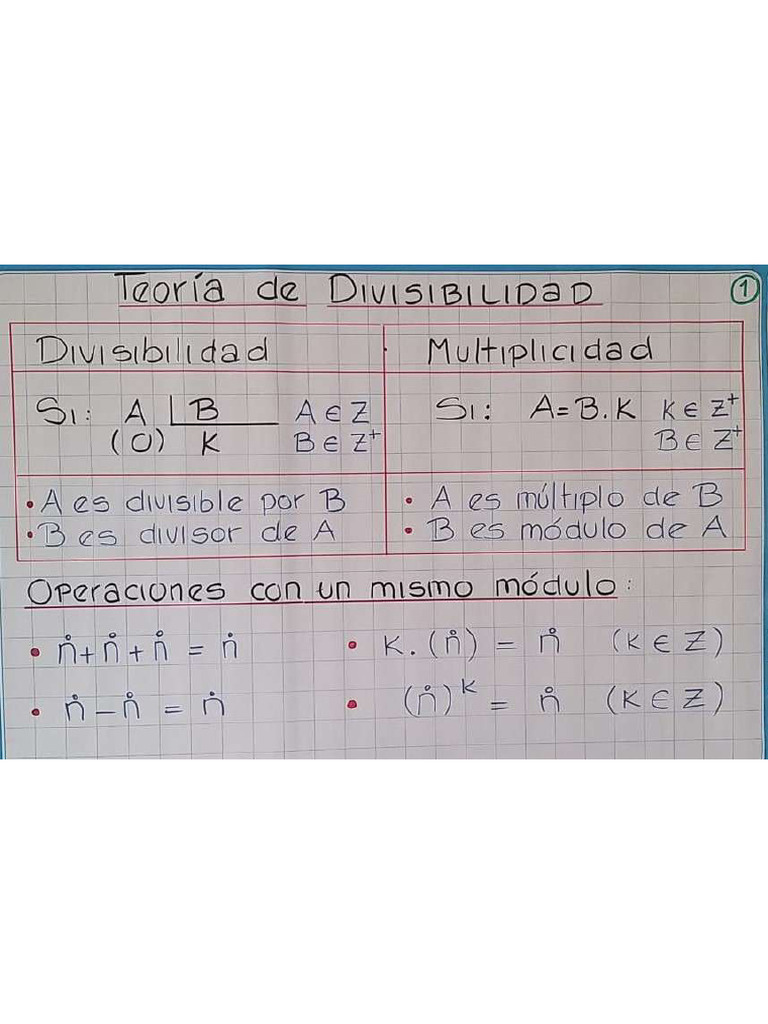 Teoría de DIVISIBILIDAD
1
Divisibilidad
Multiplicidad
Si: A | B A ∈ Z
(0) K B ∈ Z⁺
Si: A = B.K K ∈ Z⁺
B ∈ Z⁺
• A es divisible por B
• B es divisor de A
• A es múltiplo de B
• B es módulo de A
Operaciones con un mismo módulo:
• n̊ + n̊ + n̊ = n̊
• K.(n̊) = n̊ (K ∈ Z)
• n̊ – n̊ = n̊
• (n̊)ᴷ = n̊ (K ∈ Z)